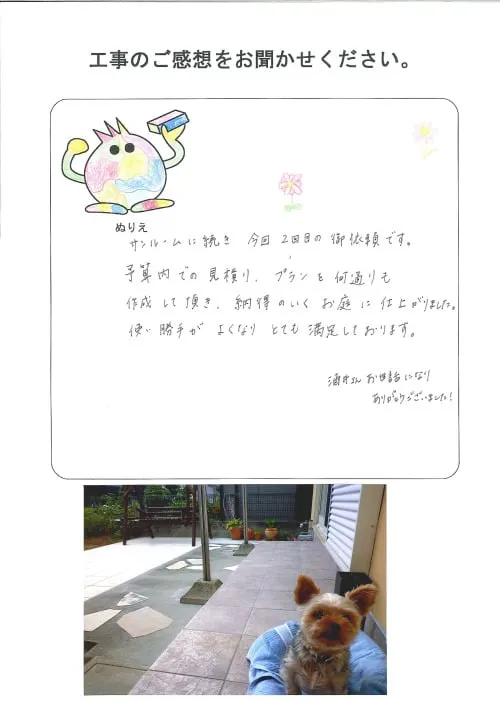 工事のご感想をお聞かせください。
ぬりえ
サンルームに続き 今回 2回目の御依頼です。
予算内での見積り、プランを何通りも
作成して頂き、納得のいくお庭に仕上がりました。
使い勝手がよくなりとても満足しております。
酒井さんお世話になり
ありがとうございました!